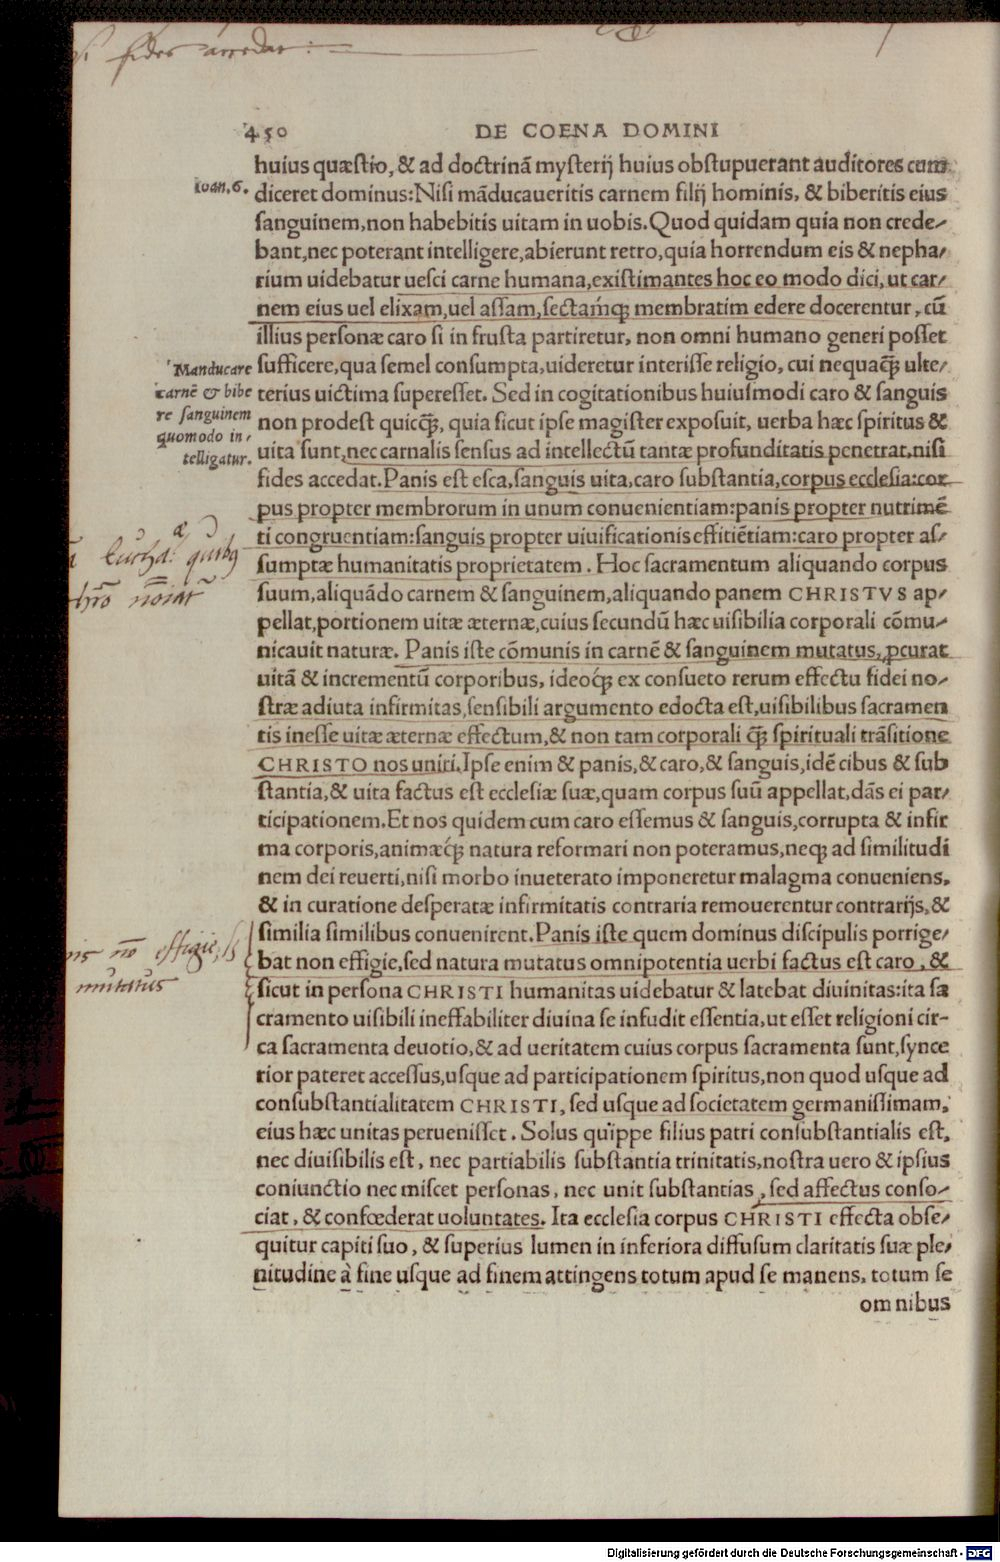 fides accedat:
450 DE COENA DOMINI
huius quæstio, & ad doctrinā mysterij huius obstupuerant auditores cum
Ioan. 6.
diceret dominus: Nisi māducaueritis carnem filij hominis, & biberitis eius
sanguinem, non habebitis uitam in uobis. Quod quidam quia non crede⸗
bant, nec poterant intelligere, abierunt retro, quia horrendum eis & nepha⸗
rium uidebatur uesci carne humana, existimantes hoc eo modo dici, ut car⸗
nem eius uel elixam, uel assam, sectamq́; membratim edere docerentur, cū
illius personæ caro si in frusta partiretur, non omni humano generi posset
Manducare
carnē & bibe
re sanguinem
quomodo in⸗
telligatur.
sufficere, qua semel consumpta, uideretur interisse religio, cui nequaq̄; ulte⸗
terius uictima superesset. Sed in cogitationibus huiusmodi caro & sanguis
non prodest quicq̄;, quia sicut ipse magister exposuit, uerba hæc spiritus &
uita sunt, nec carnalis sensus ad intellectū tantæ profunditatis penetrat, nisi
fides accedat. Panis est esca, sanguis uita, caro substantia, corpus ecclesia: cor
pus propter membrorum in unum conuenientiam: panis propter nutrimē
ti congruentiam: sanguis propter uiuificationis effitiētiam: caro propter as⸗
sumptæ humanitatis proprietatem. Hoc sacramentum aliquando corpus
suum, aliquādo carnem & sanguinem, aliquando panem CHRISTVS ap⸗
pellat, portionem uitæ æternæ, cuius secundū hæc uisibilia corporali cōmu⸗
nicauit naturæ. Panis iste cōmunis in carnē & sanguinem mutatus, ꝓcurat
uitā & incrementū corporibus, ideoq́; ex consueto rerum effectu fidei no⸗
stræ adiuta infirmitas, sensibili argumento edocta est, uisibilibus sacramen
tis inesse uitæ æternæ effectum, & non tam corporali q̄; spirituali trāsitione
CHRISTO nos uniri. Ipse enim & panis, & caro, & sanguis, idē cibus & sub
stantia, & uita factus est ecclesiæ suæ, quam corpus suū appellat, dās ei par⸗
ticipationem. Et nos quidem cum caro essemus & sanguis, corrupta & infir
ma corporis, animæq́; natura reformari non poteramus, neq; ad similitudi
nem dei reuerti, nisi morbo inueterato imponeretur malagma conueniens,
& in curatione desperatæ infirmitatis contraria remouerentur contrarijs, &
similia similibus conuenirent. Panis iste quem dominus discipulis porrige⸗
nō effigie, sȝ
mutatus
bat non effigie, sed natura mutatus omnipotentia uerbi factus est caro, &
sicut in persona CHRISTI humanitas uidebatur & latebat diuinitas: ita sa
cramento uisibili ineffabiliter diuina se infudit essentia, ut esset religioni cir-
ca sacramenta deuotio, & ad ueritatem cuius corpus sacramenta sunt, synce
rior pateret accessus, usque ad participationem spiritus, non quod usque ad
consubstantialitatem CHRISTI, sed usque ad societatem germanissimam,
eius hæc unitas peruenisset. Solus quippe filius patri consubstantialis est,
nec diuisibilis est, nec partiabilis substantia trinitatis, nostra uero & ipsius
coniunctio nec miscet personas, nec unit substantias, sed affectus conso⸗
ciat, & confœderat uoluntates. Ita ecclesia corpus CHRISTI effecta obse⸗
quitur capiti suo, & superius lumen in inferiora diffusum claritatis suæ ple⸗
nitudine à fine usque ad finem attingens totum apud se manens, totum se
omnibus
Digitalisierung gefördert durch die Deutsche Forschungsgemeinschaft - DFG